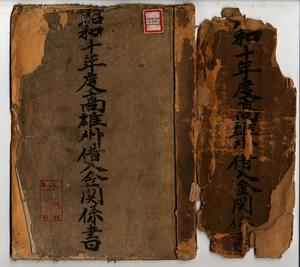 昭和十年度高雄州借入金関係書
和十年度高雄州借入金関係書
永